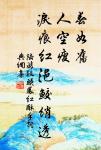 春如舊
人空瘦
淚痕紅浥鮫綃透
陸游釵頭鳳紅酥手句